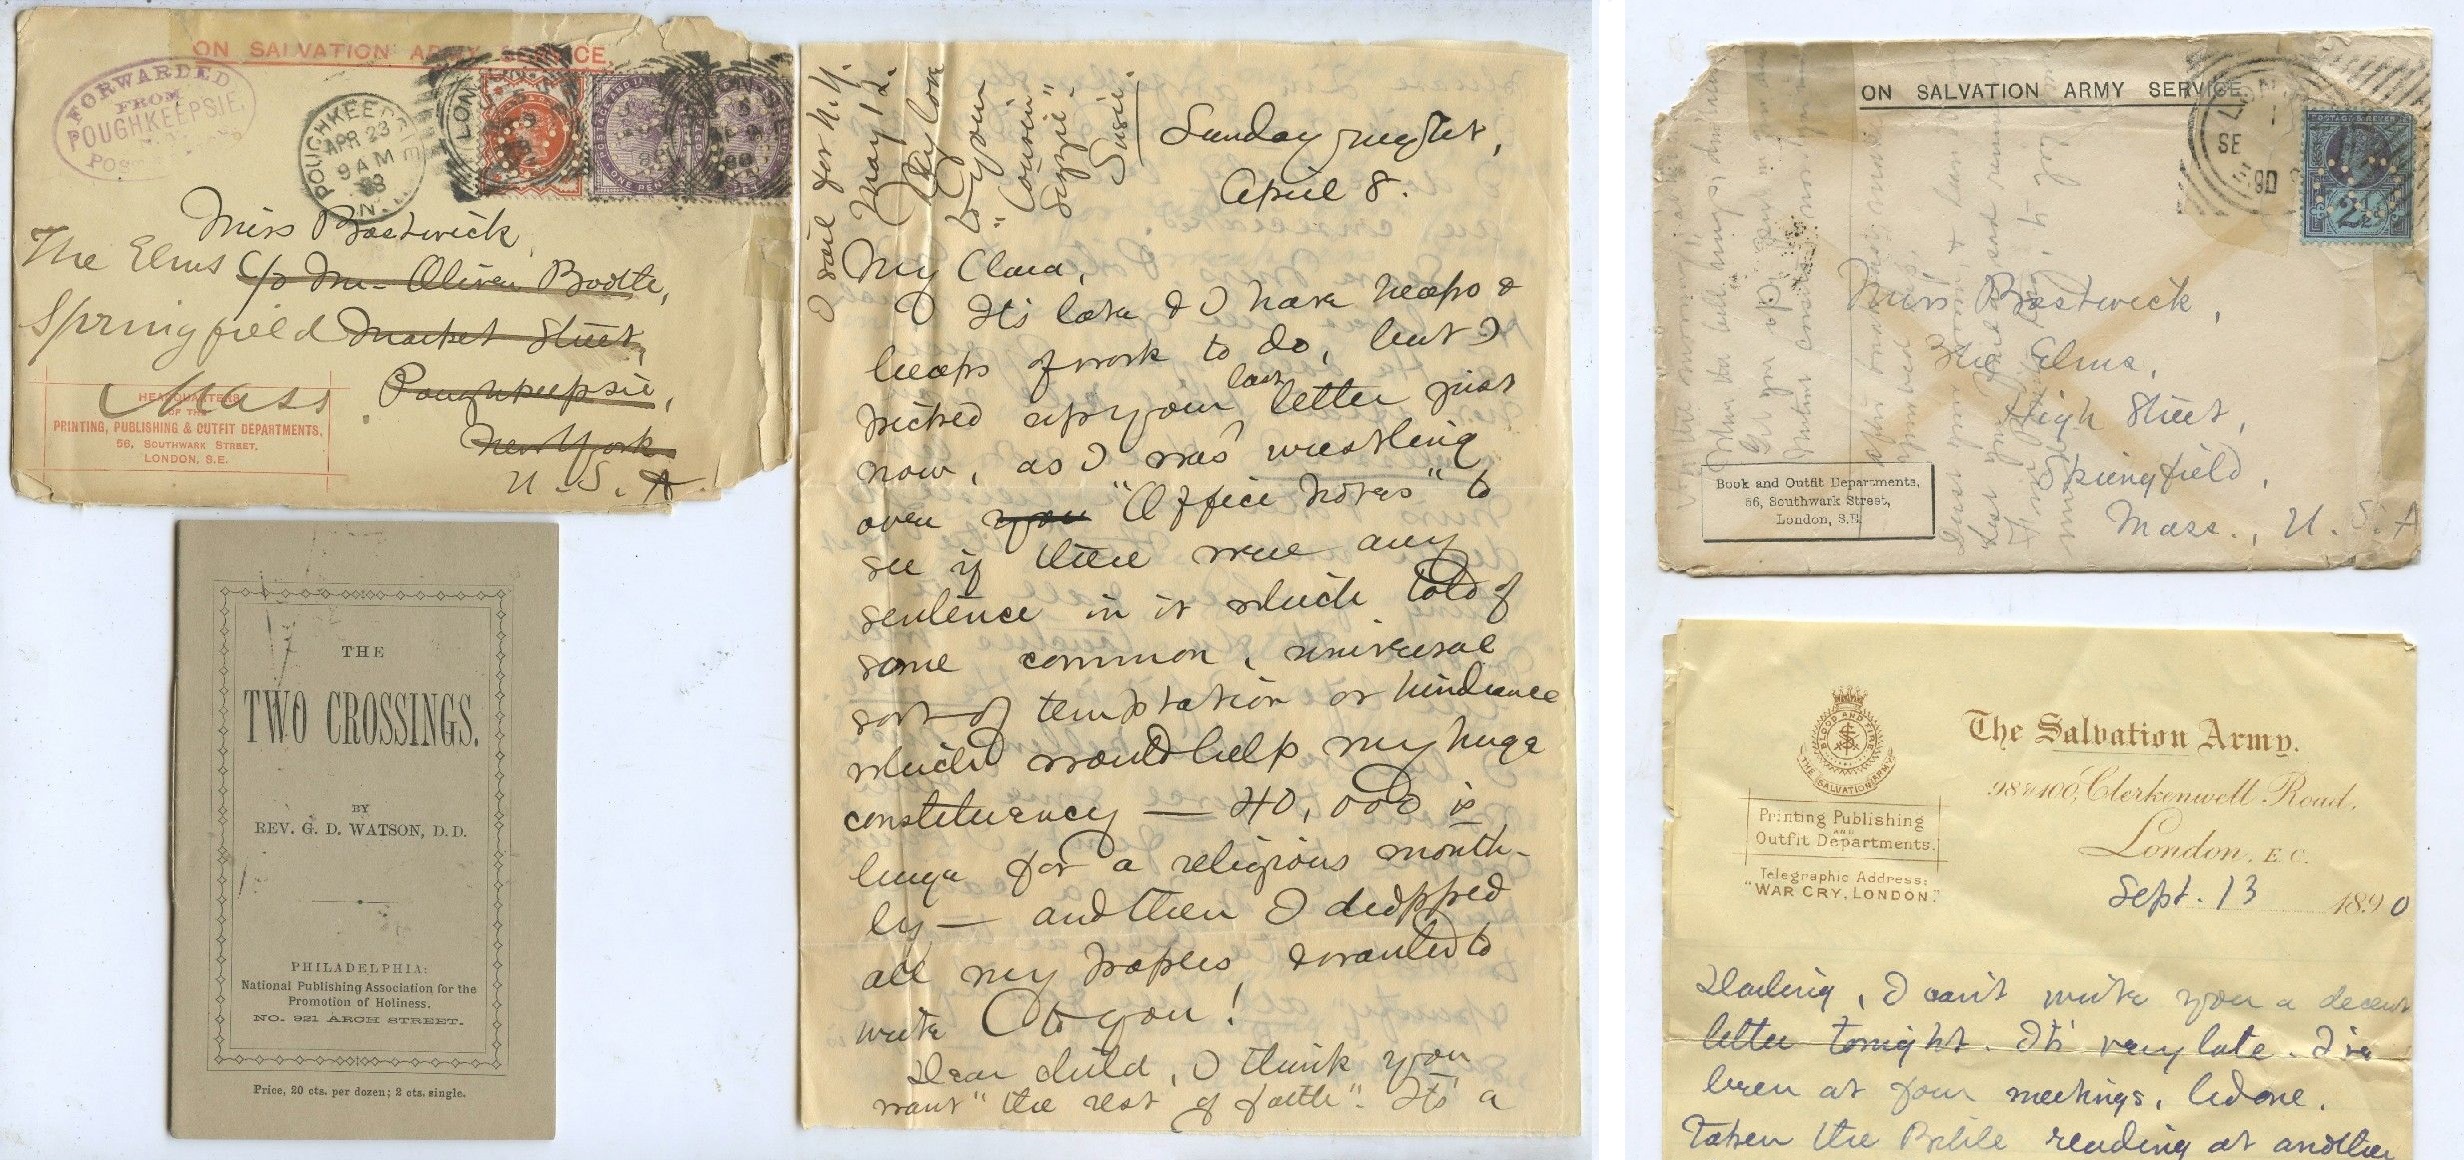 ON SALVATION ARMY SERVICE.
FORWARDED
FROM
POUGHKEEPSIE
POUGHKEEPSIE
APR 23
9 AM
88
N.
LON
Miss Bostwick
The Elms c/o Mr. Oliver Boothe,
Springfield Market Street,
Mass. Poughkeepsie,
New York.
U. S. A.
HEADQUARTERS
OF THE
PRINTING, PUBLISHING & OUTFIT DEPARTMENTS,
56, SOUTHWARK STREET,
LONDON, S.E.
THE
TWO CROSSINGS.
BY
REV. G. D. WATSON, D.D.
PHILADELPHIA:
National Publishing Association for the
Promotion of Holiness.
NO. 921 ARCH STREET.
Price, 20 cts. per dozen; 2 cts. single.
I sail for N.Y.
May 12.
My love
to your
"Cousin
Lizzie".
Susie.
Sunday night,
April 8.
My Clara,
It's late & I have heaps &
heaps of work to do, but I
picked up your last letter just
now, as I was wrestling
over you "Office Notes" to
see if there were any
sentence in it which told of
some common, universal
sort of temptation or hindrance
which would help my huge
constituency — 40,000 is
huge for a religious month-
ly — and then I dropped
all my papers, & wanted to
write to you!
Dear child, I think you
want "the rest of faith". It's a
ON SALVATION ARMY SERVICE
SE
90
POSTAGE & REVENUE
Miss Bostwick,
The Elms,
High Street,
Springfield,
Mass., U. S. A
Book and Outfit Departments,
56, Southwark Street,
London, S.E.
BLOOD AND FIRE
THE SALVATION ARMY
The Salvation Army.
98 & 100, Clerkenwell Road,
London, E.C.
Printing Publishing
AND
Outfit Departments.
Telegraphic Address:
"WAR CRY, LONDON."
Sept. 13 1890
Darling, I can't write you a decent
letter tonight. It's very late. I've
been at four meetings, led one.
Taken the Bible reading at another